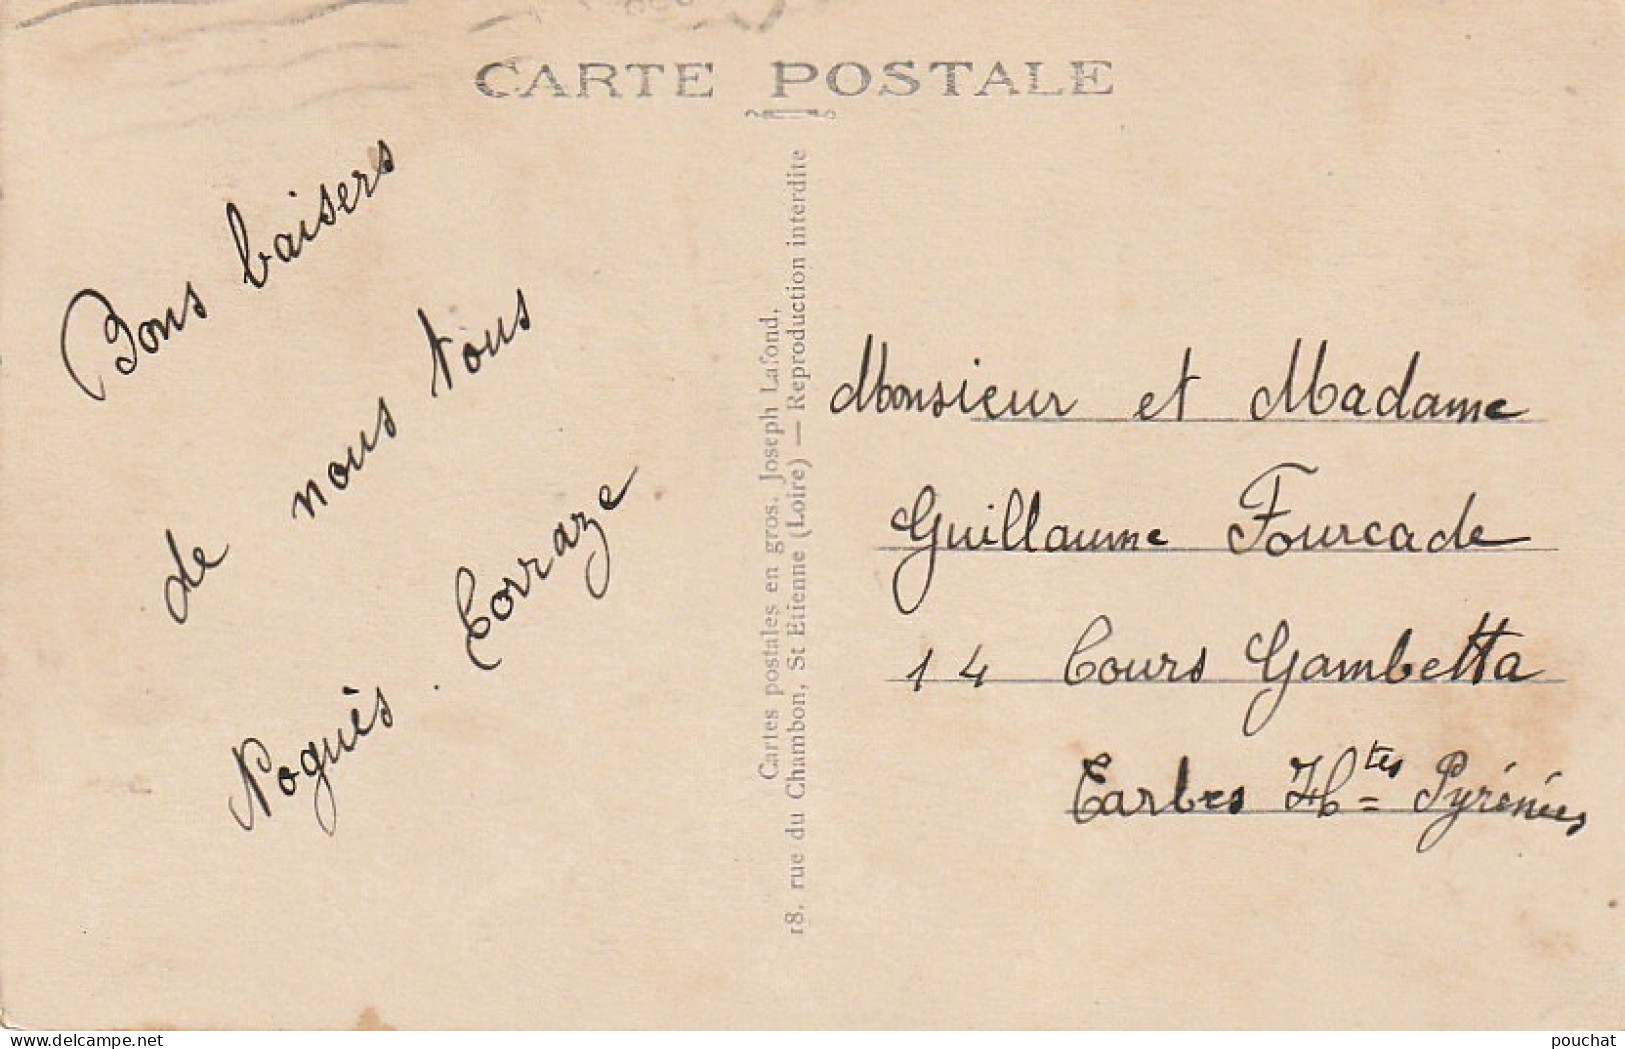 CARTE POSTALE
Bons baisers
de nous tous
Noguès. Corraze
Cartes postales en gros. Joseph Lafond,
18, rue du Chambon, St Etienne (Loire) — Reproduction interdite
Monsieur et Madame
Guillaume Fourcade
14 Cours Gambetta
Tarbes Htes Pyrénées
delcampe.net
pouchat